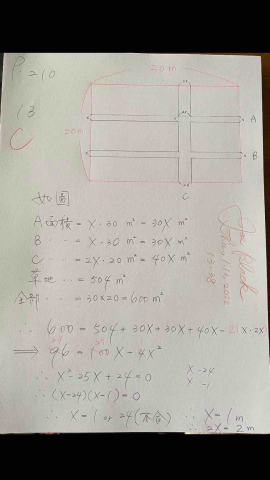 P. 210
30 m
13
C
20m
A
B
C
如圖
A 面積 = X · 30 m² = 30X m²
B ‥‥ = X · 30 m² = 30X m²
C ‥‥ = 2X · 20 m² = 40X m²
草地 ‥‥ = 504 m²
全部 ‥‥ = 30×20 = 600 m²
∴ 600 = 504 + 30X + 30X + 40X - 2(X · 2X)
⇒ 96 = 100X - 4X²
24 25
∴ X² - 25X + 24 = 0
X -24
X -1
∴ (X-24)(X-1) = 0
∴ X = 1 or 24 (不合)
∴ X = 1 m
∴ 2X = 2 m